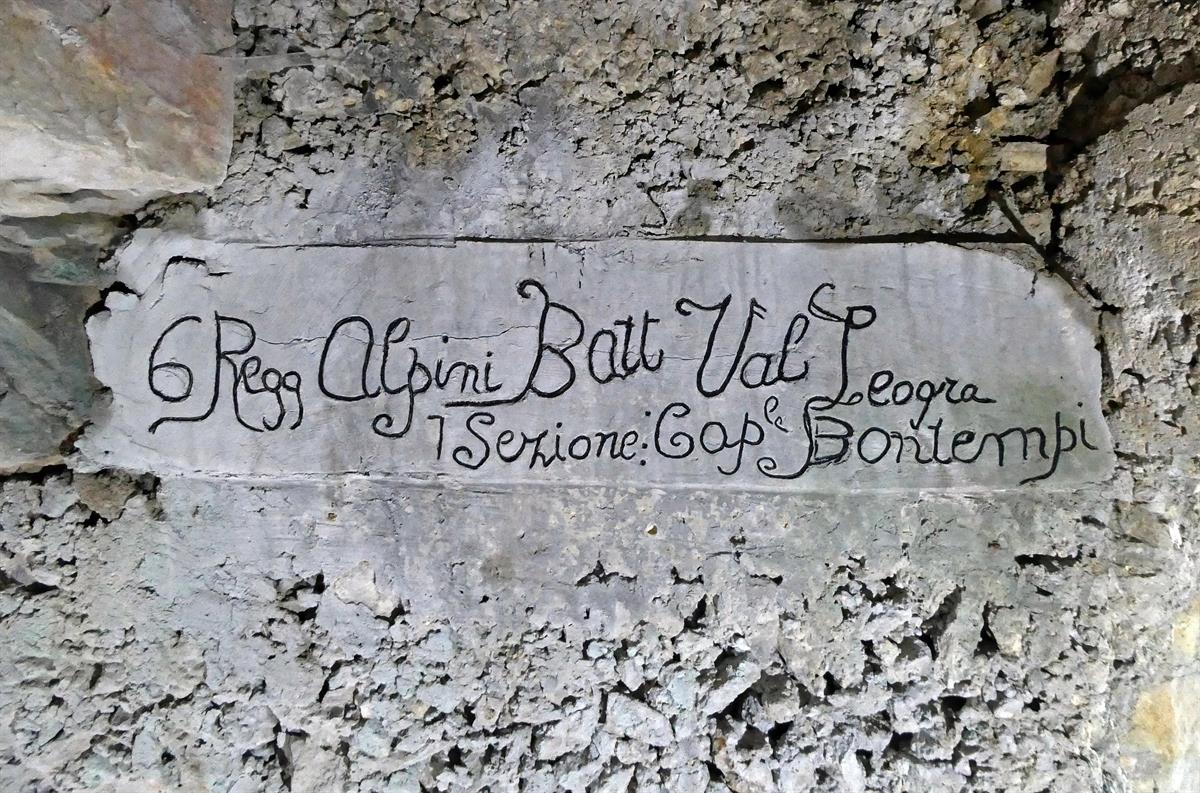 6 Regg Alpini Batt Val Leogra
1 Sezione: Cap.le Bontempi